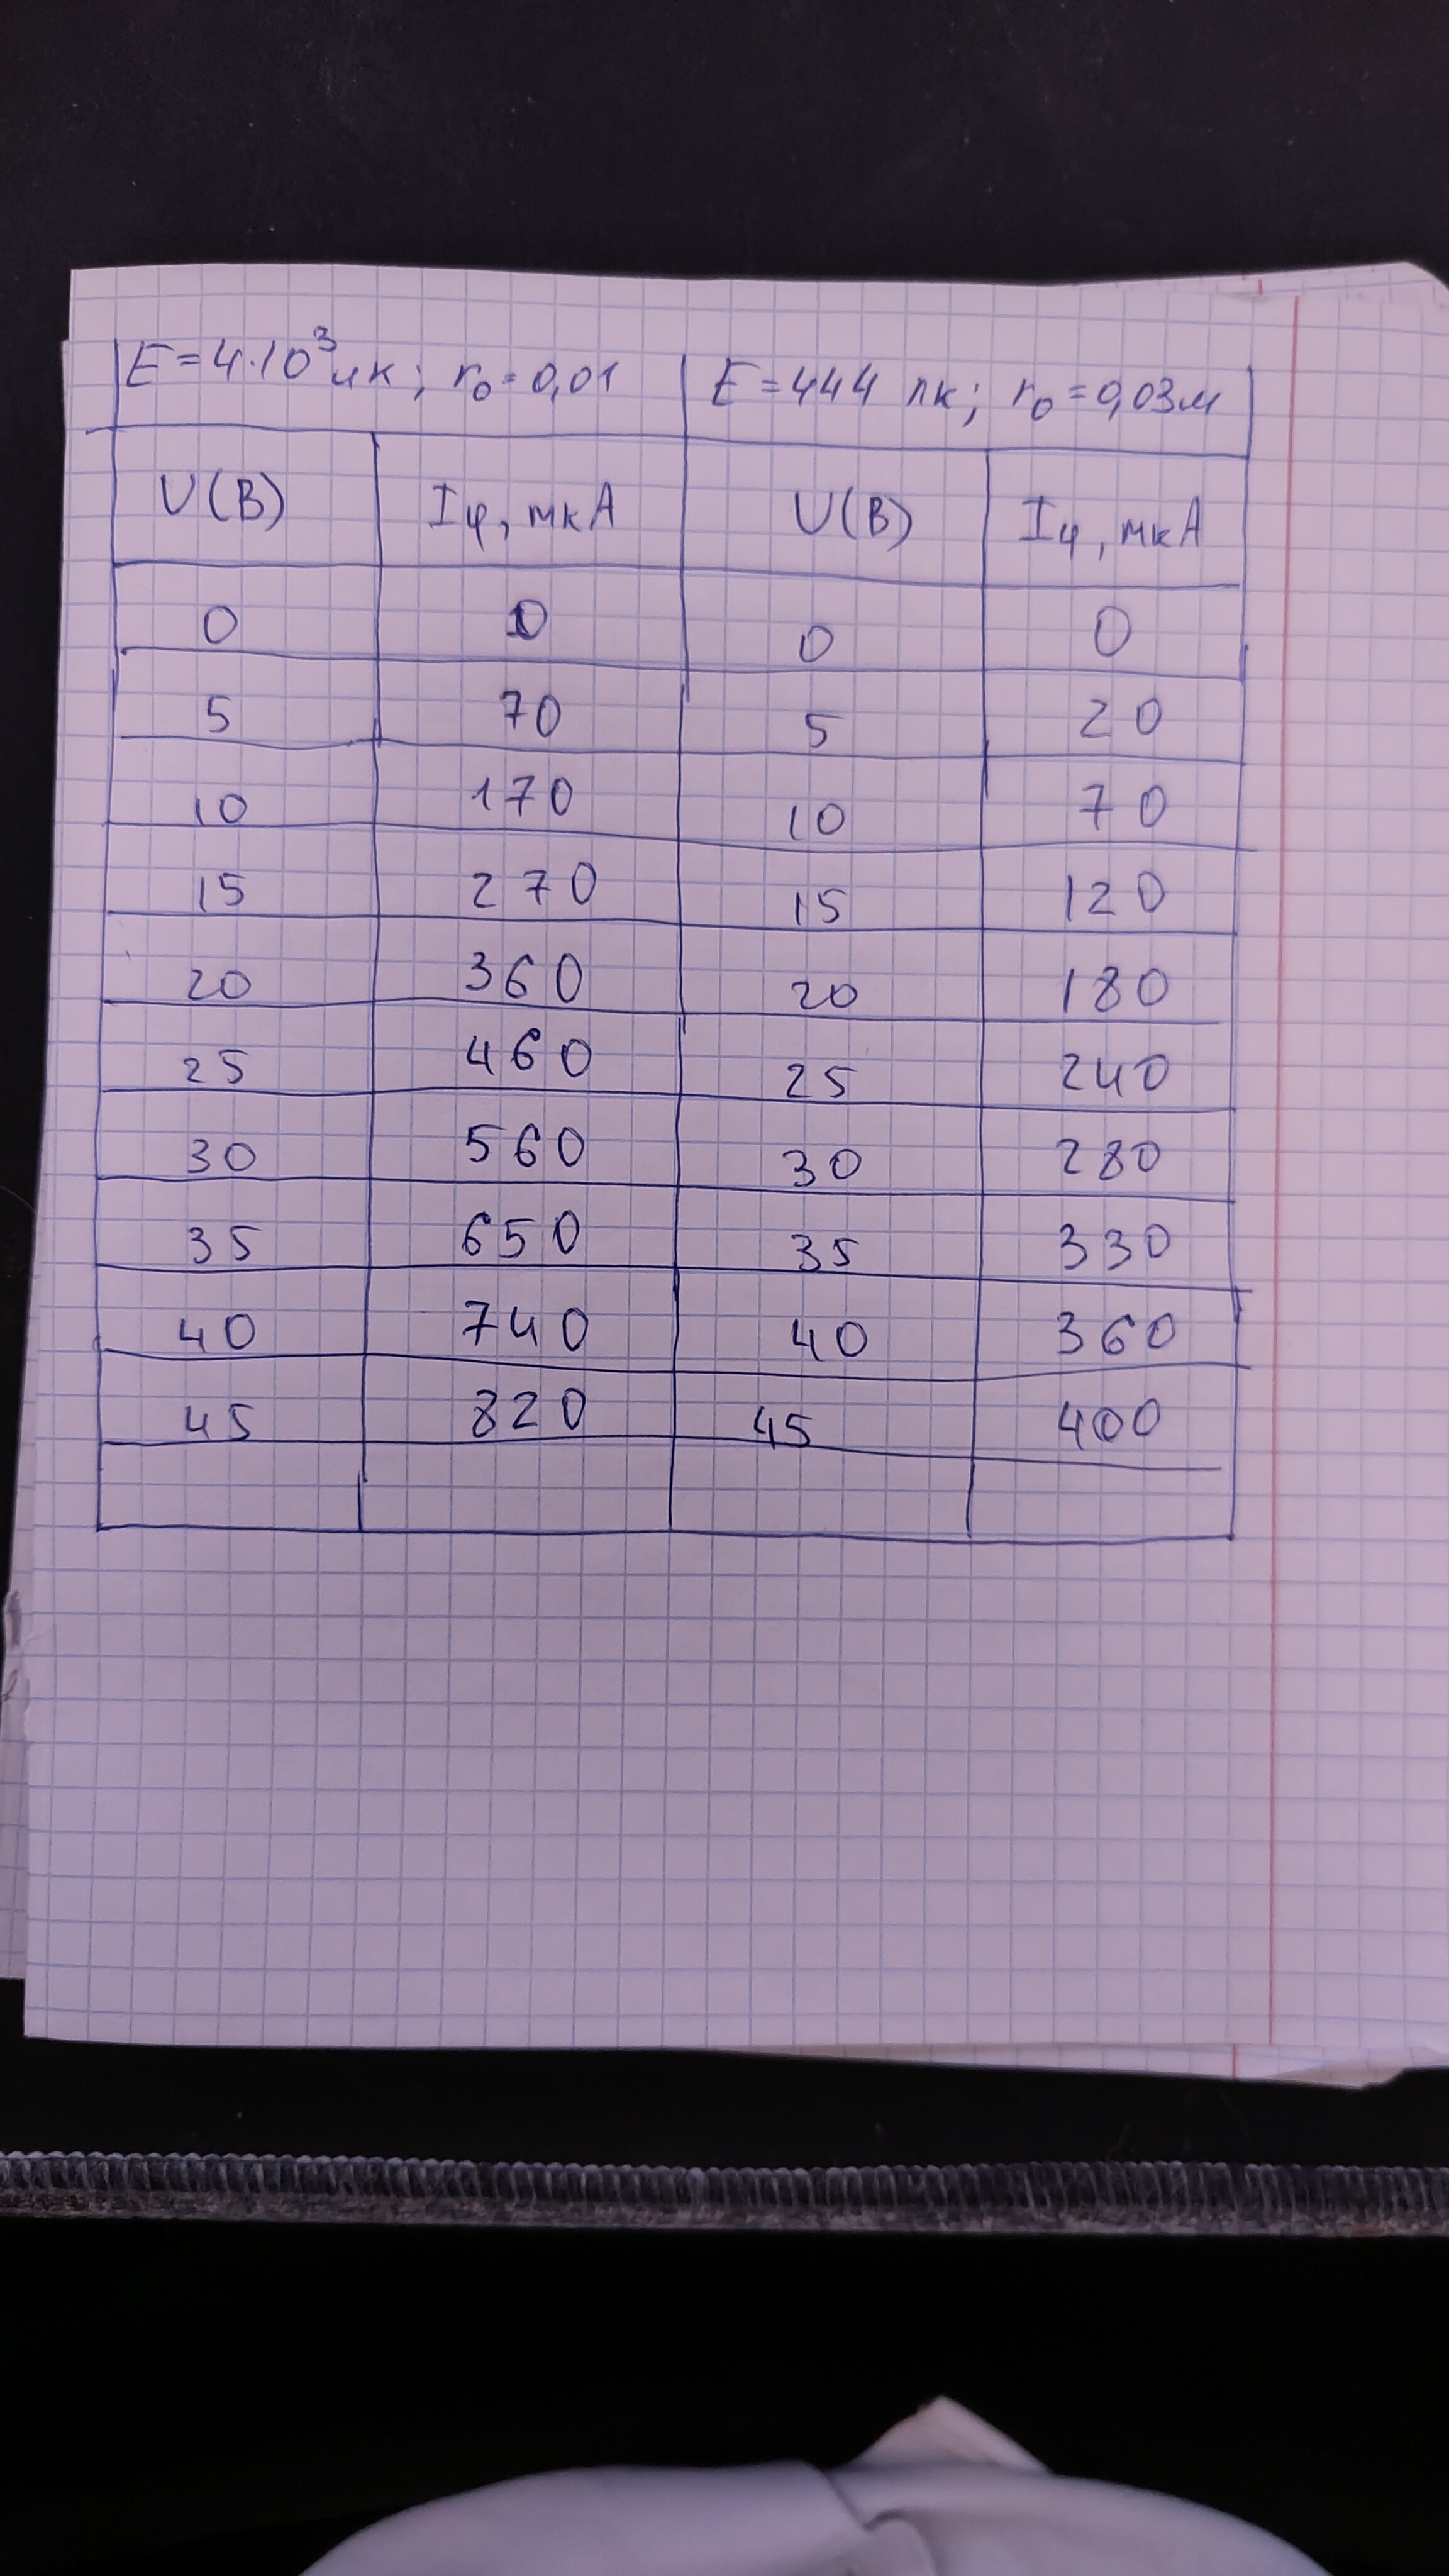 E=4·10³лк; r₀=0,01 E=444 лк; r₀=0,03м
U(B) Iф, мкА U(B) Iф, мкА
0 0 0 0
5 70 5 20
10 170 10 70
15 270 15 120
20 360 20 180
25 460 25 240
30 560 30 280
35 650 35 330
40 740 40 360
45 820 45 400